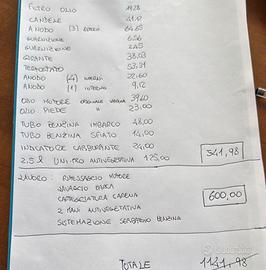 FILTRO OLIO 19.28
CANDELE
ANODO (3) ESTERNI 64.68
GUARNIZIONE 6.56
GUARNIZIONE 2.45
GIRANTE 38.03
TERMOSTATO 53.31
ANODO (4) INTERNI 22.60
ANODO (1) INTERNO 9.12
OLIO MOTORE ORIGINALE YAMAHA 39.60
OLIO PIEDE " 23,00
TUBO BENZINA IMBARCO 48,00
TUBO BENZINA SFIATO 14,00
INDICATORE CARBURANTE 34.00
2,5 l UNI-TRO ANTIVEGETATIVA 125,00 541,98
LAVORO: RIMESSAGGIO MOTORE
LAVAGGIO BARCA
CARTEGGIATURA CARENA 600,00
2 MANI ANTIVEGETATIVA
SISTEMAZIONE SERBATOIO BENZINA
TOTALE 1141,98